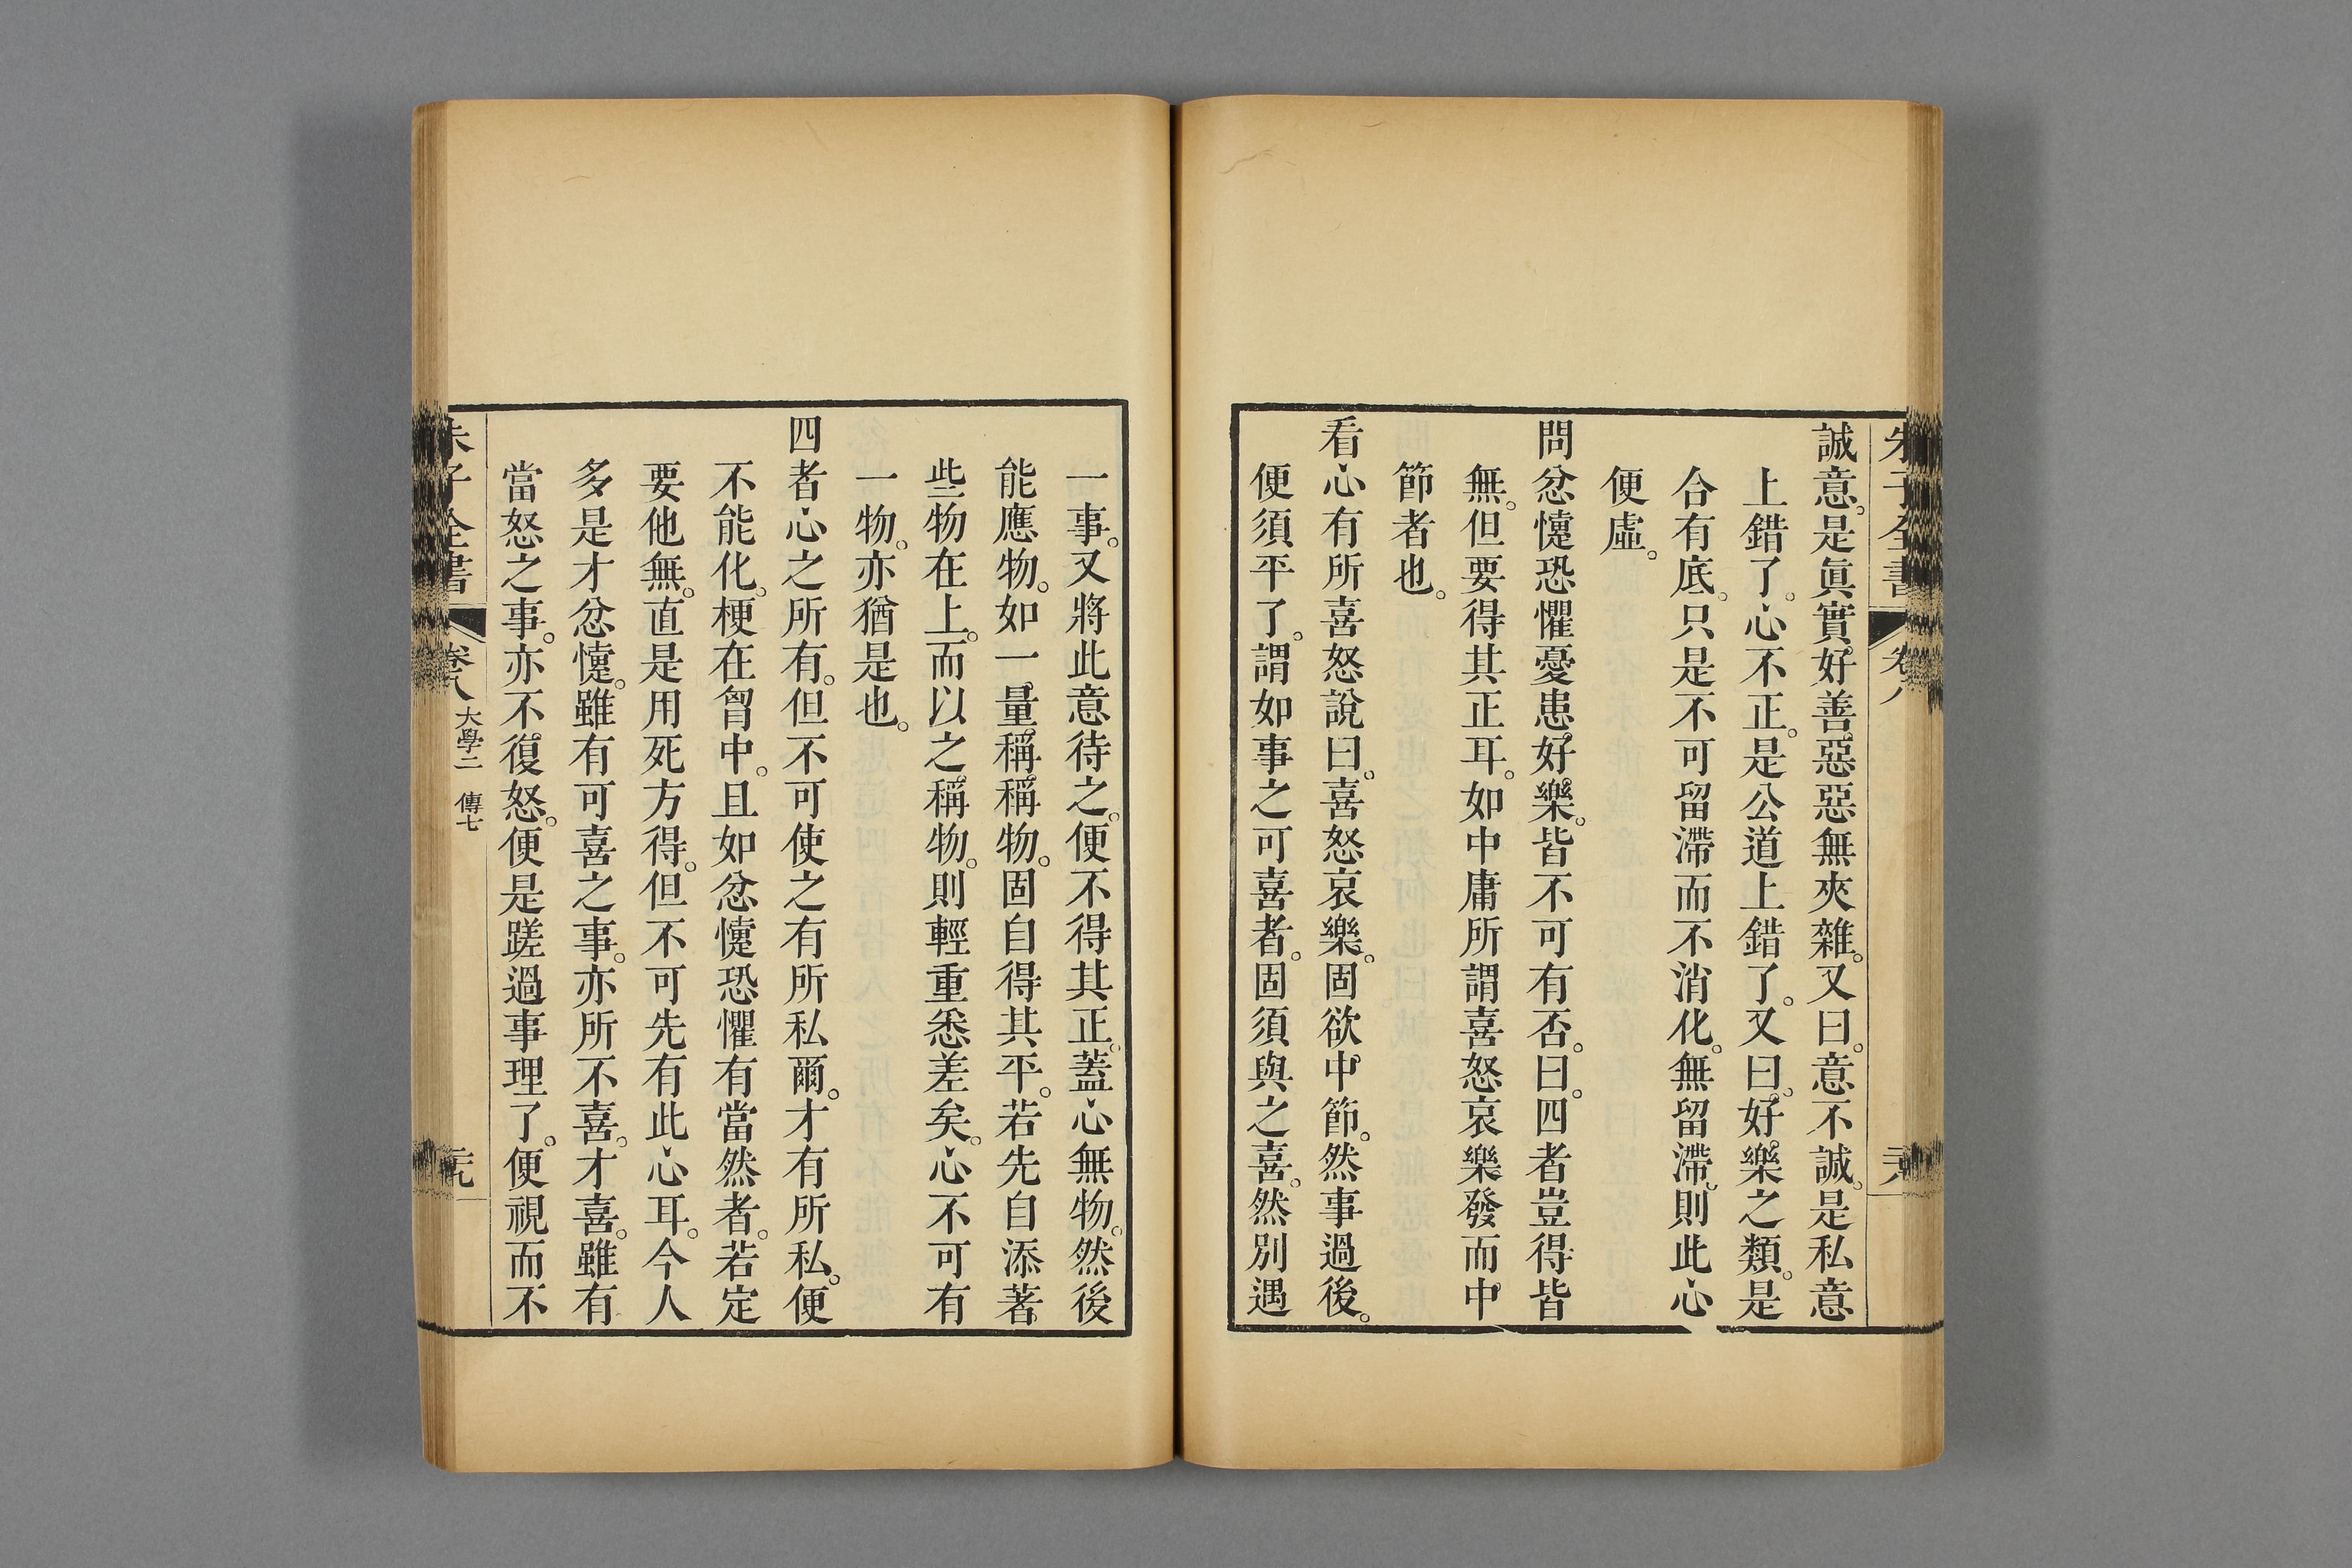 朱子全書 卷八 二十八
誠意。是眞實。好善惡惡無夾雜。又曰。意不誠。是私意
上錯了。心不正。是公道上錯了。又曰。好樂之類。是
合有底。只是不可留滯而不消化。無留滯。則此心
便虛。
問忿懥恐懼憂患好樂。皆不可有否。曰。四者豈得皆
無。但要得其正耳。如中庸所謂喜怒哀樂發而中
節者也。
看心有所喜怒說曰。喜怒哀樂。固欲中節。然事過後。
便須平了。謂如事之可喜者。固須與之喜。然別遇
一事。又將此意待之。便不得其正。蓋心無物。然後
能應物。如一量稱稱物。固自得其平。若先自添著
些物在上。而以之稱物。則輕重悉差矣。心不可有
一物。亦猶是也。
四者心之所有。但不可使之有所私爾。才有所私。便
不能化。梗在胷中。且如忿懥恐懼有當然者。若定
要他無。直是用死方得。但不可先有此心耳。今人
多是才忿懥。雖有可喜之事。亦所不喜。才喜。雖有
當怒之事。亦不復怒。便是蹉過事理了。便視而不
朱子全書 卷八 大學二 傳七 二十九